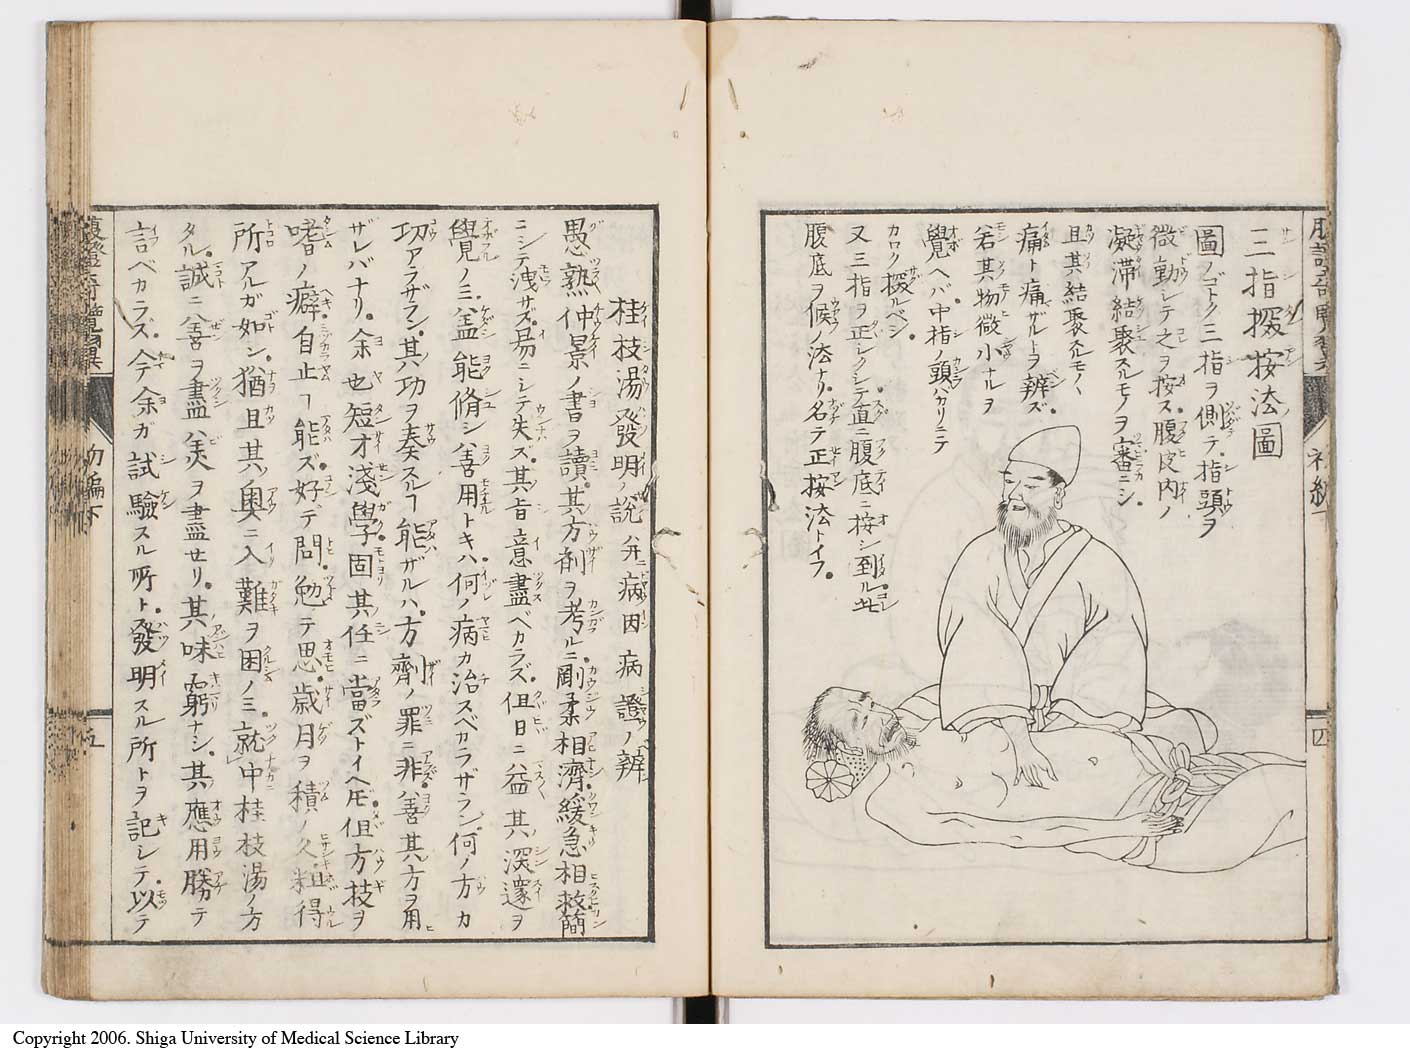 三指探按法圖
圖ノゴトク三指ヲ側テ指頭ヲ
微動シテ之ヲ按ス腹皮内ノ
凝滞結聚スルモノヲ審ニシ
且其結聚スルモノ
痛ト痛ザルトヲ辨ズ
若其物微小ナルヲ
覺ヘバ中指ノ頭バカリニテ
カロク探ルベシ
又三指ヲ正シクシテ直ニ腹底ニ按シ到ル此
腹底ヲ候ノ法ナリ名テ正按法トイフ
四
桂枝湯發明ノ說并ニ病因病證ノ辨
愚熟仲景ノ書ヲ讀其方劑ヲ考ルニ剛柔相濟緩急相救簡
ニシテ洩サズ易ニシテ失ズ其旨意盡ベカラズ但日ニ益其深邃ヲ
覺ノミ蓋能脩シ善用トキハ何ノ病カ治スベカラザラン何ノ方カ
功アラザラン其功ヲ奏スルヿ能ザルハ方劑ノ罪ニ非善其方ヲ用
ザレバナリ余也短才淺學固其任ニ當ズトイヘドモ但方技ヲ
嗜ノ癖自止ヿ能ズ好デ問勉テ思歳月ヲ積ノ久粗得
所アルガ如シ猶且其奥ニ入難ヲ困ノミ就中桂枝湯ノ方
タル誠ニ善ヲ盡ハ美ヲ盡セリ其味窮ナシ其應用勝テ
言ベカラズ今余ガ試驗スル所ト發明スル所トヲ記シテ以テ
腹證奇覽翼
初編下
五
Copyright 2006. Shiga University of Medical Science Library